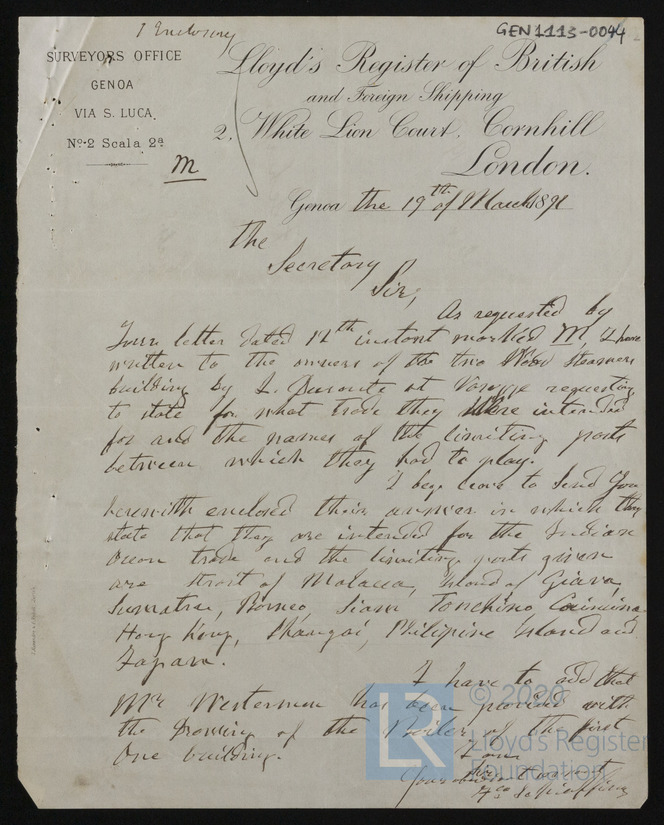 1 Enclosing
GEN1113-0094
SURVEYORS OFFICE
GENOA
VIA S. LUCA.
No. 2 Scala 2a
M
Lloyd's Register of British
and Foreign Shipping
2, White Lion Court, Cornhill
London.
Genoa the 19th of March 1891
The
Secretary
Sir,
As requested by
Your letter dated 12th instant marked M, I have
written to the owners of the two Wood steamers
building by at requesting
to state for what trade they were intended
for and the names of the limiting ports
between which they had to play.
I beg leave to send you
herewith enclosed their answer in which they
state that they are intended for the Indian
Ocean trade and the limiting ports given
are Strait of Malacca, Island of Giava,
Sumatra, Borneo, Siam Tonchino
Hong Kong, Shangai, Philipine Island and
Japan.
I have to add that
Mr Westerman has been provided with
the Drawing of the Boiler of the first
One building.
I am
Sir
Your
© 2020
LR
Lloyd's Register
Foundation